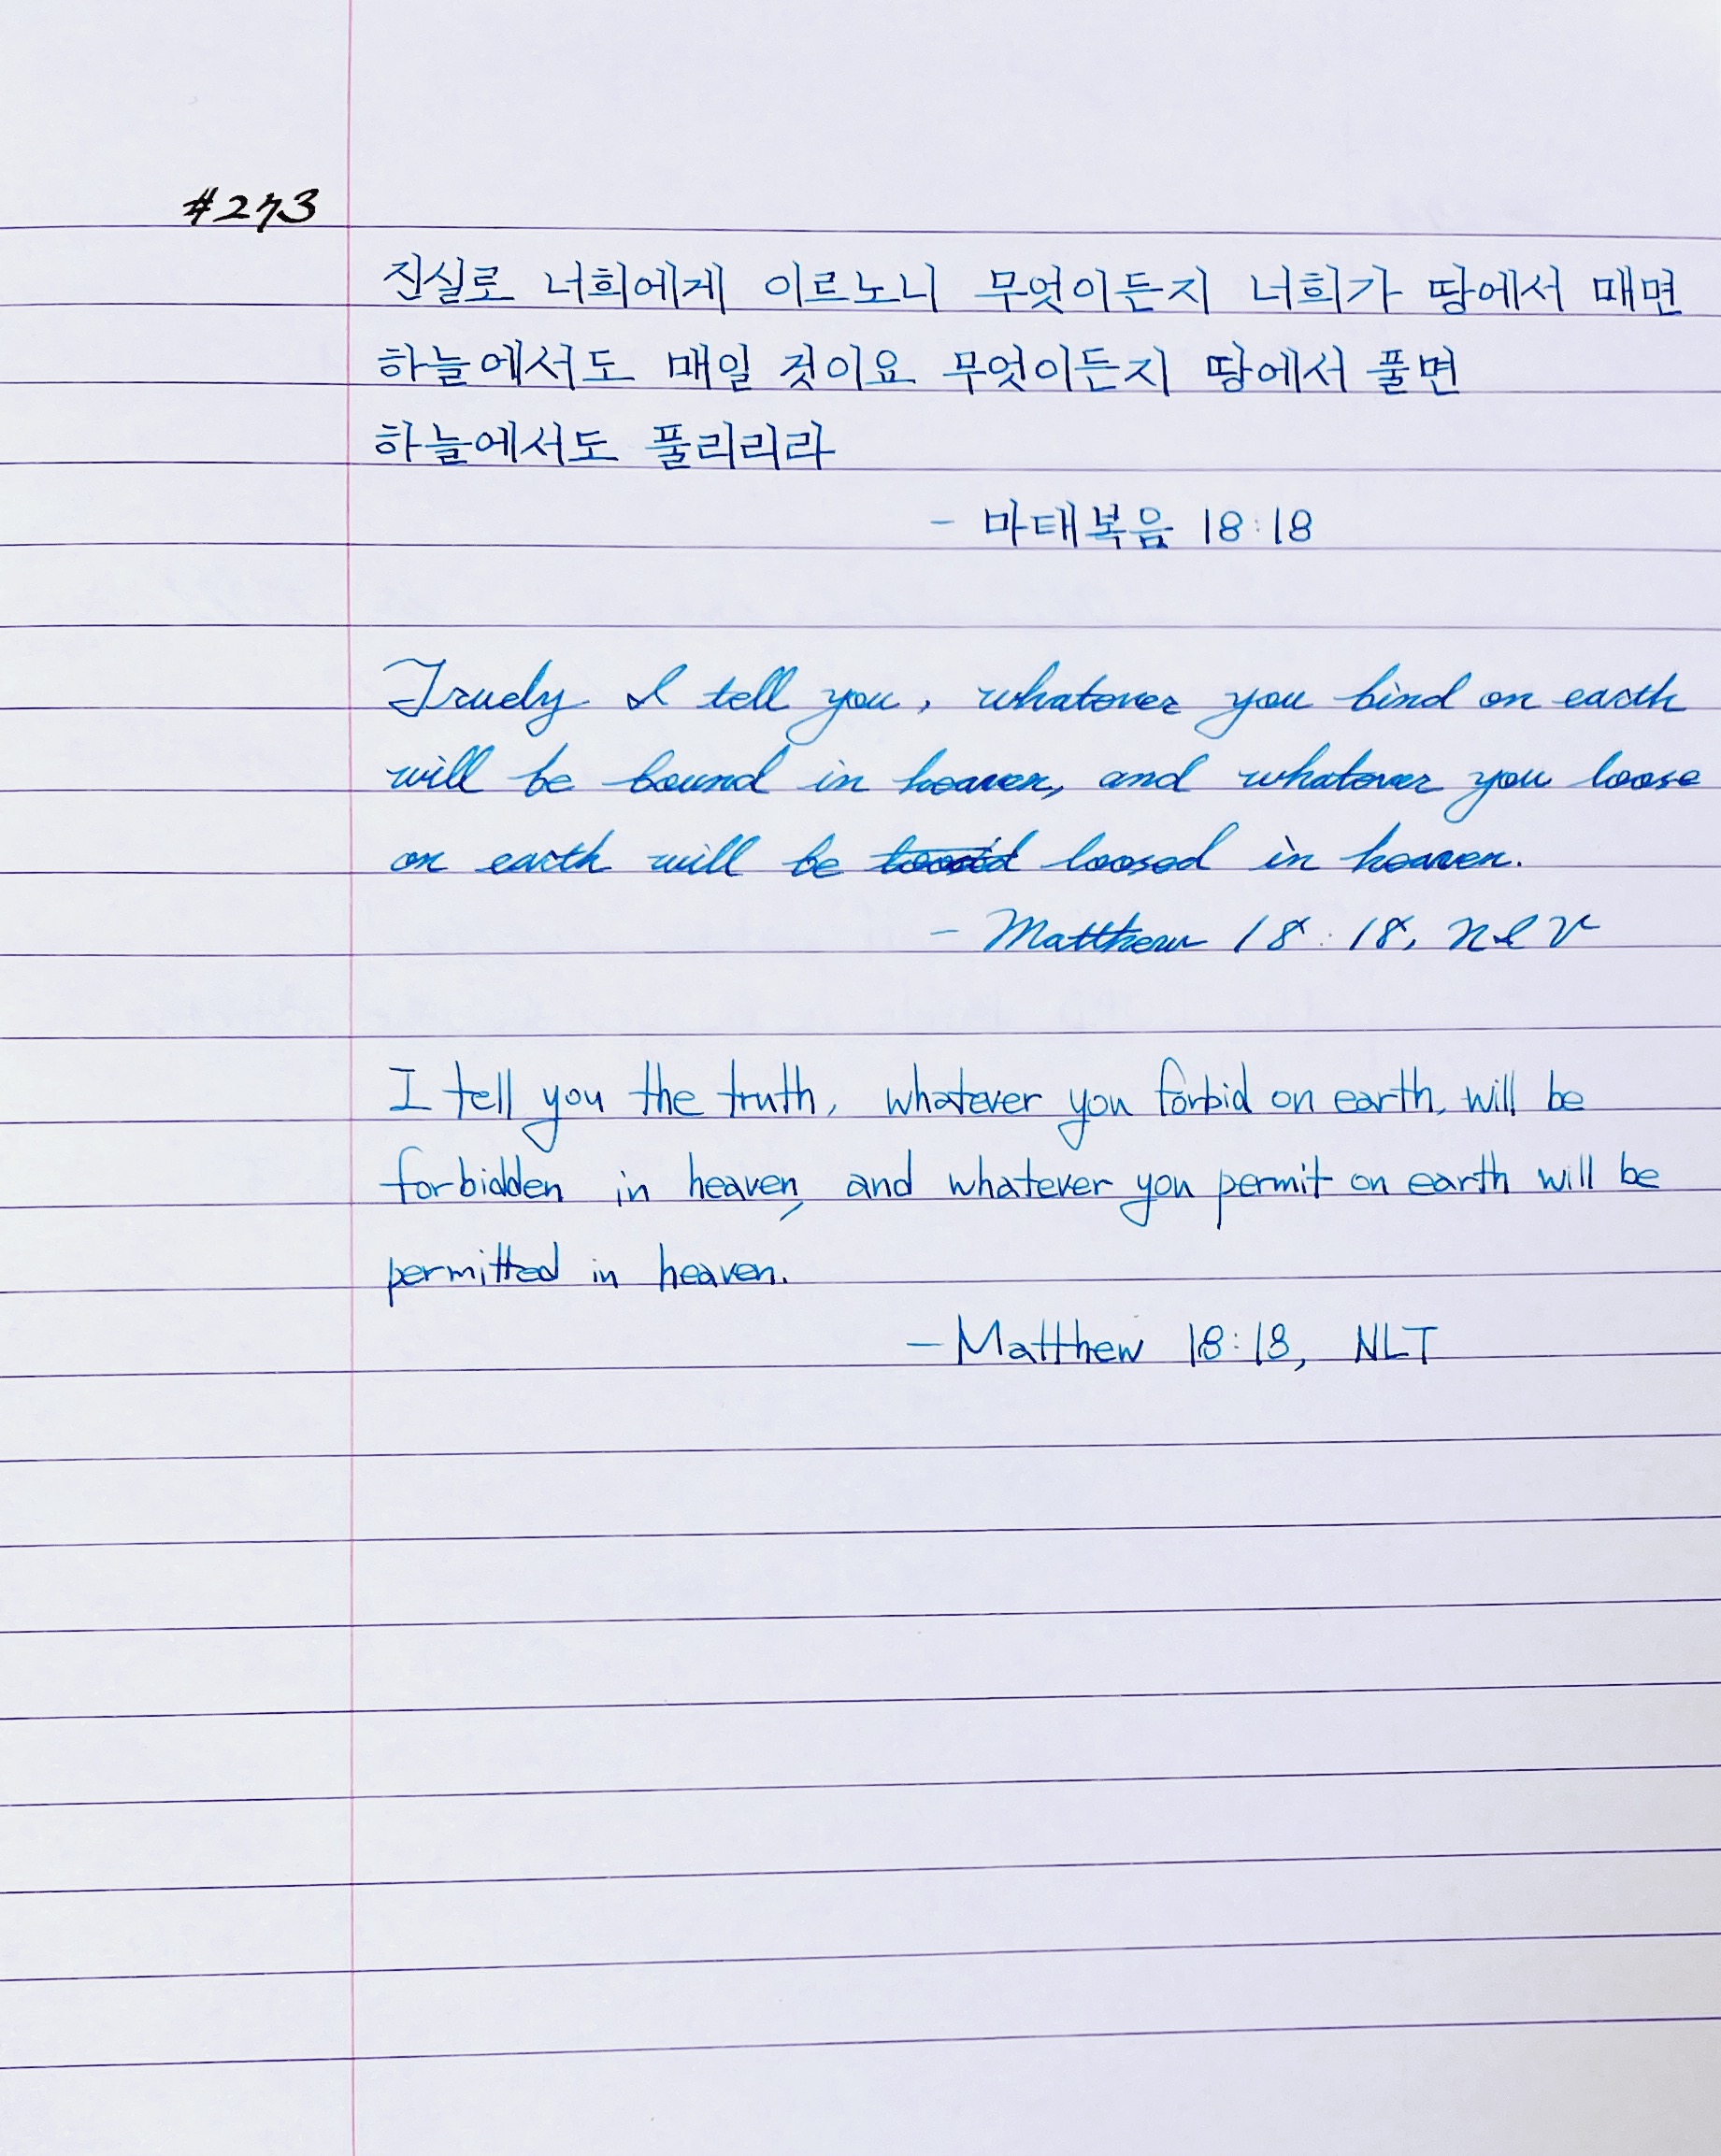 #273
진실로 너희에게 이르노니 무엇이든지 너희가 땅에서 매면
하늘에서도 매일 것이요 무엇이든지 땅에서 풀면
하늘에서도 풀리리라
- 마태복음 18:18
Truely I tell you, whatever you bind on earth
will be bound in heaven, and whatever you loose
on earth will be loosed in heaven.
- Matthew 18:18, NIV
I tell you the truth, whatever you forbid on earth, will be
forbidden in heaven, and whatever you permit on earth will be
permitted in heaven.
- Matthew 18:18, NLT